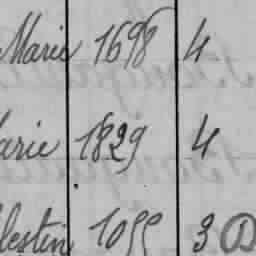 Marie 1698 4
arie 1829 4
lestin 1099 3